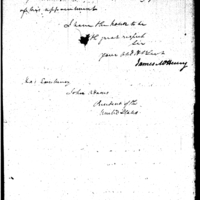 I have the honor to be
with great respect
Sir
your obd. H Servt
James McHenry
His Excellency
John Adams
President of the
United States